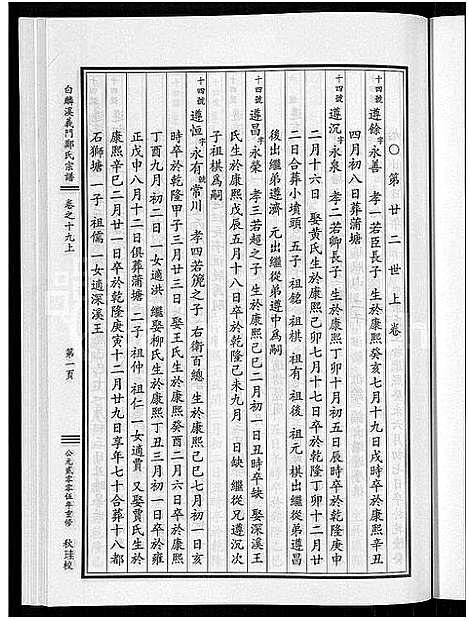 第廿二世上卷
十四號 遵餘 字永善 孝一若臣長子 生於康熙癸亥七月十九日戌時卒於康熙辛丑
四月初八日葬蒲塘
十四號 遵沉 字永泉 孝二若卿長子 生於康熙丁卯十月初五日辰時卒於乾隆庚申
二月十六日 娶黃氏生於康熙己卯七月十七日卒於乾隆丁卯十二月廿
二日合葬小墳頭 五子 祖銘 祖棋 祖有 祖後 祖元 棋出繼從弟遵昌
後出繼弟遵濟 元出繼從弟遵中爲嗣
十四號 遵昌 字永榮 孝三若超之子 生於康熙己巳二月初一日丑時卒缺 娶深溪王
氏生於康熙戊辰五月十八日卒於乾隆己未九月 日缺 繼從兄遵沉次
子祖棋爲嗣
十四號 遵恒 字永有號常川 孝四若㲄之子 右衛百總 生於康熙己巳七月初一日亥
時卒於乾隆甲子三月廿三日 娶王氏生於康熙癸酉二月六日卒於康熙
丁酉九月初二日 一女適洪 繼娶柳氏生於康熙丁丑三月初一日卒於雍
正戊申八月十二日俱葬蒲塘 二子 祖仲 祖仁 一女適賈 又娶賈氏生於
康熙辛巳二月廿一日卒於乾隆庚寅十二月廿九日享年七十合葬十八都
石獅塘 一子 祖儒 一女適深溪王
白麟溪義門鄭氏宗譜
卷之十九上
第一頁
公元貳零零伍年重修 秋𤧬校